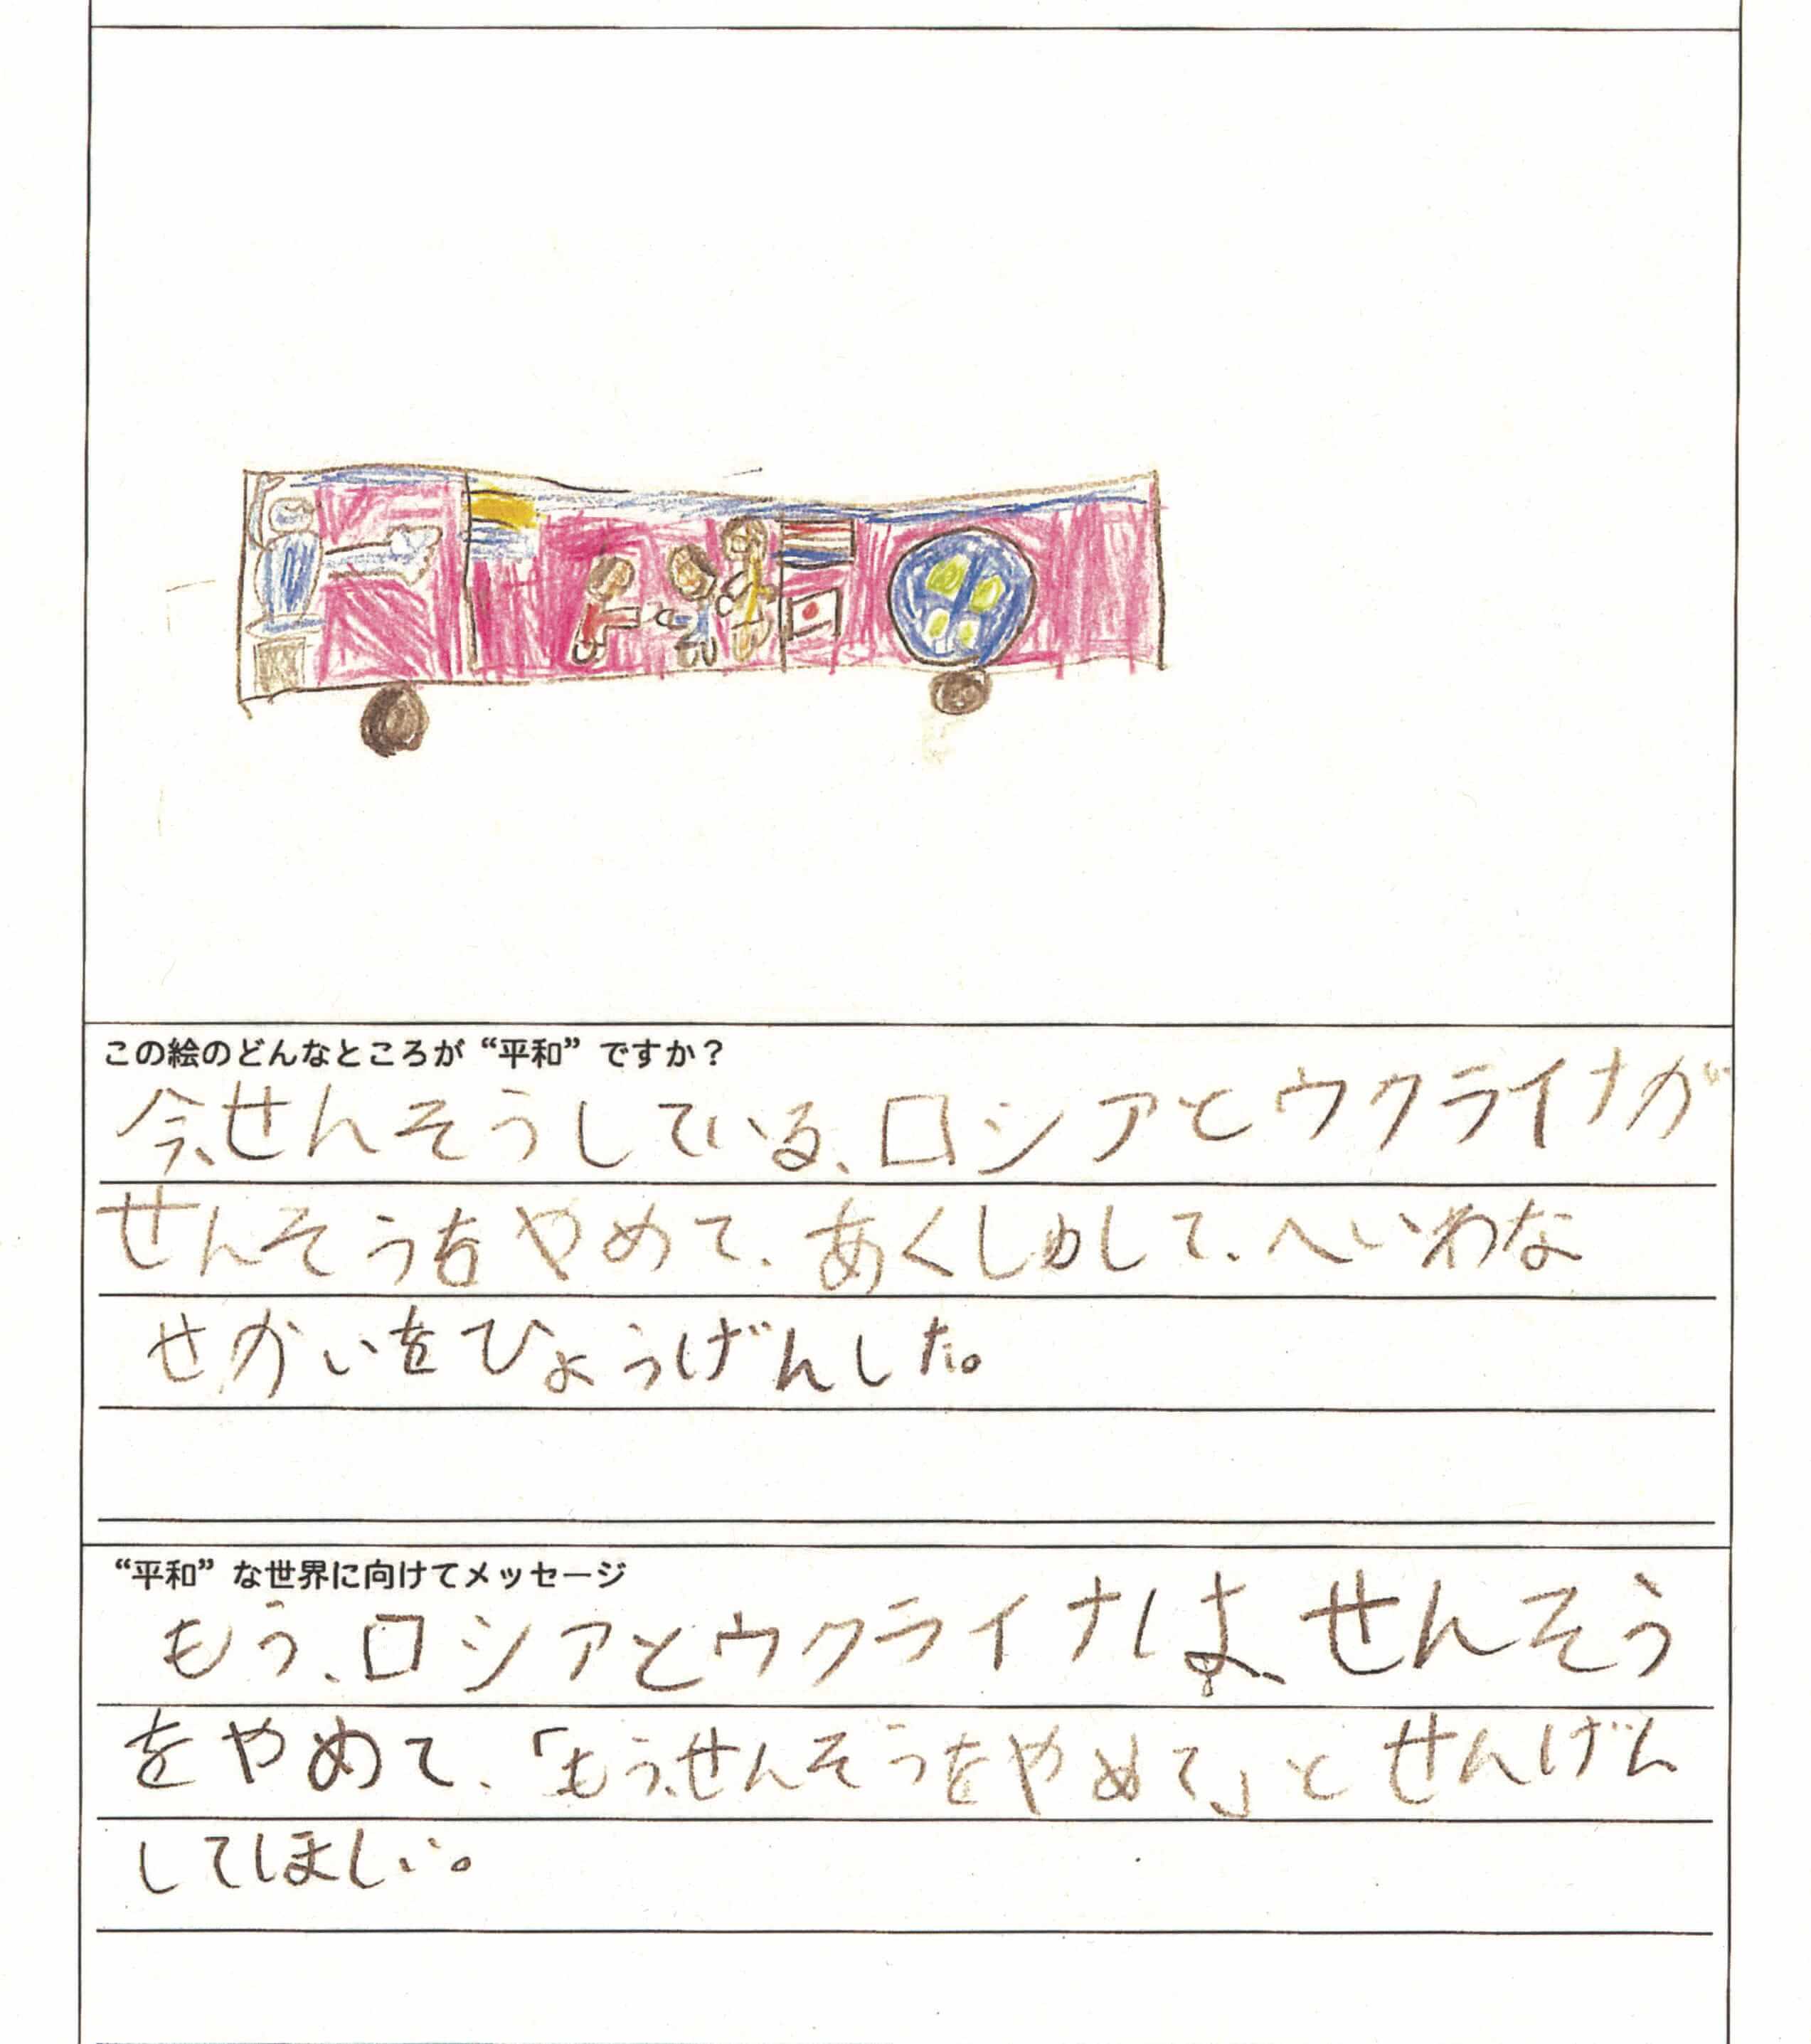 この絵のどんなところが“平和”ですか？
今、せんそうしている、ロシアとウクライナが
せんそうをやめて、あくしゅして、へいわな
せかいをひょうげんした。
“平和”な世界に向けてメッセージ
もう、ロシアとウクライナは、せんそう
をやめて、「もう、せんそうをやめて」とせんげん
してほしい。